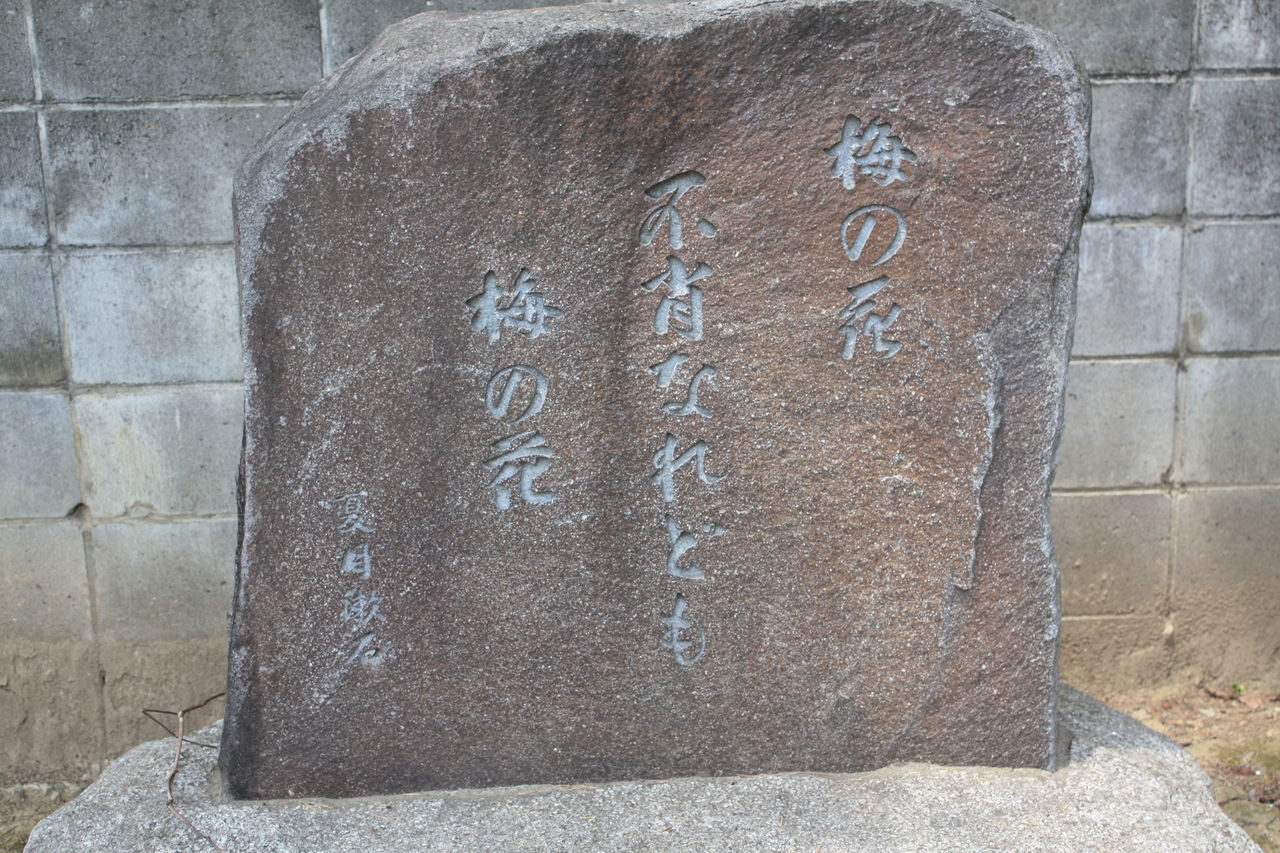 梅の花
不肖なれども
梅の花
夏目漱石